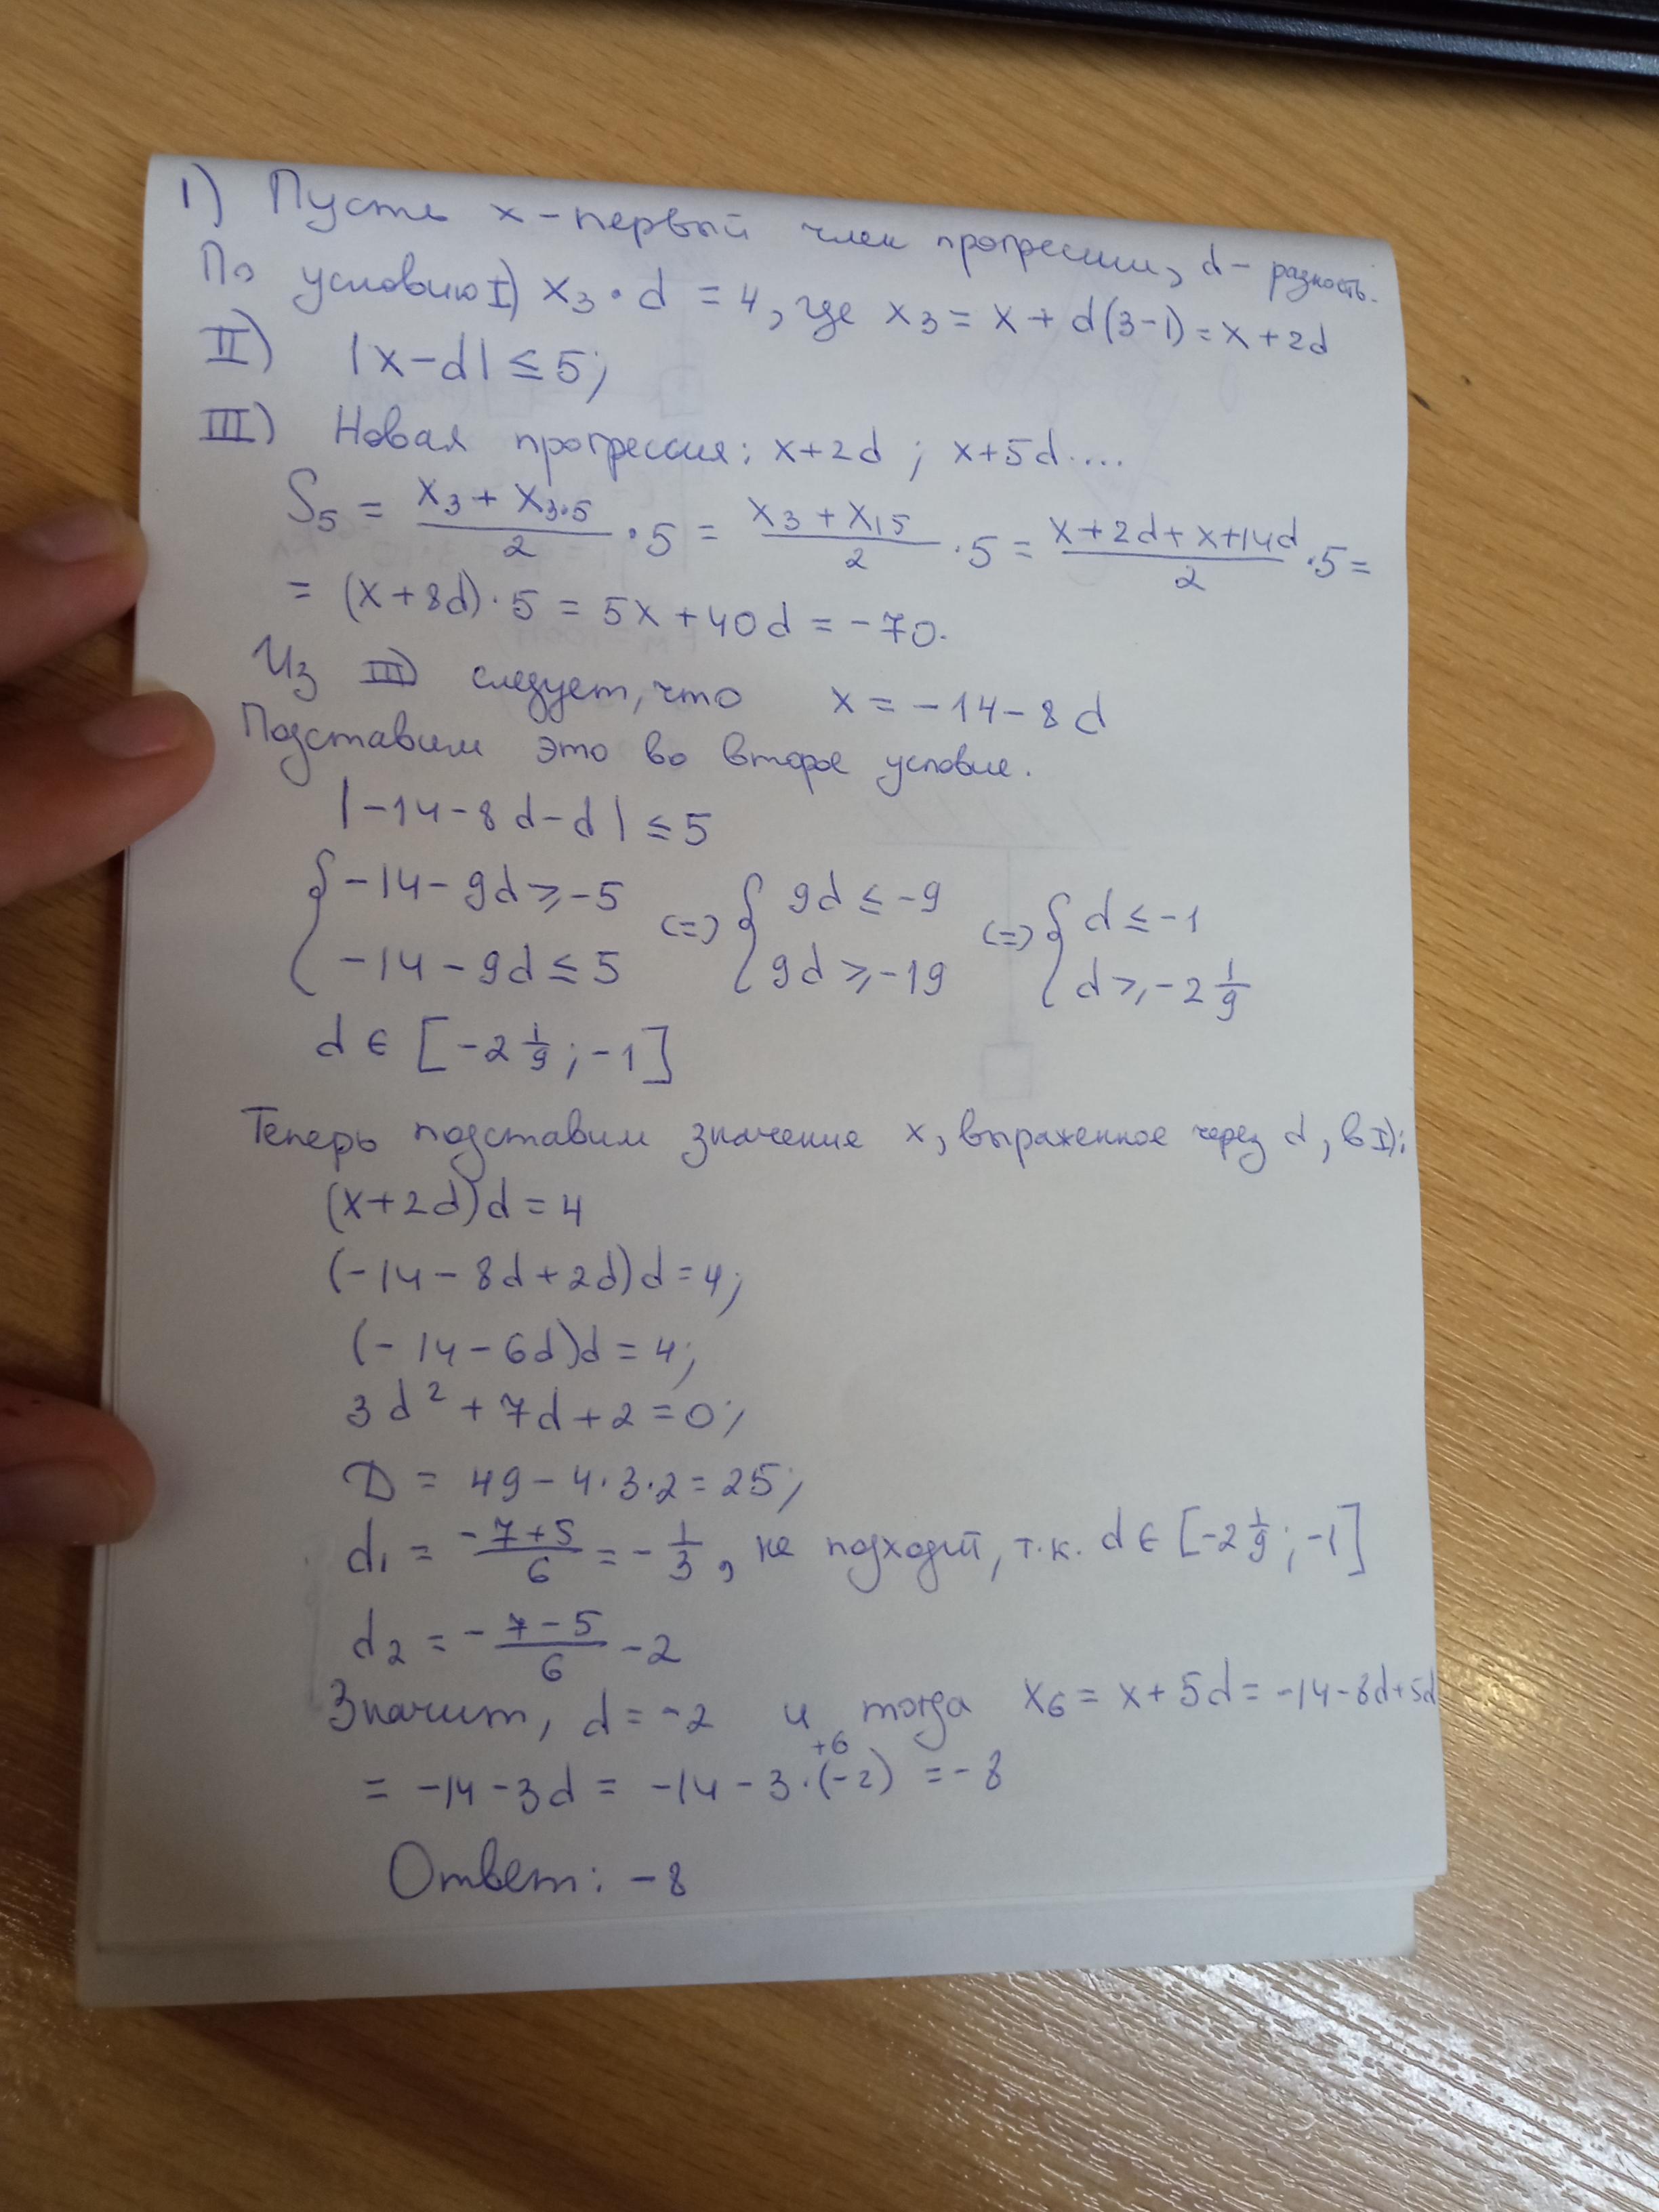 1) Пусть x - первый член прогрессии, d - разность.
По условию I) x₃ · d = 4, где x₃ = x + d(3-1) = x + 2d
II) |x - d| ≤ 5;
III) Новая прогрессия: x+2d ; x+5d ....
S₅ = (x₃ + x₃.₅)/2 · 5 = (x₃ + x₁₅)/2 · 5 = (x+2d+x+14d)/2 · 5 =
= (x+8d) · 5 = 5x + 40d = -70.
Из III) следует, что x = -14 - 8d
Подставим это во второе условие.
|-14-8d-d| ≤ 5
{ -14-9d ≥ -5 (=) { 9d ≤ -9 (=) { d ≤ -1
-14-9d ≤ 5 9d ≥ -19 d ≥ -2 1/9
d ∈ [-2 1/9 ; -1]
Теперь подставим значение x, выраженное через d, в I):
(x+2d)d = 4
(-14-8d+2d)d = 4;
(-14-6d)d = 4;
3d² + 7d + 2 = 0;
D = 49 - 4·3·2 = 25;
d₁ = (-7+5)/6 = -1/3, не подходит, т.к. d ∈ [-2 1/9 ; -1]
d₂ = (-7-5)/6 -2
Значит, d = -2 и тогда x₆ = x + 5d = -14-8d+5d
+6
= -14-3d = -14-3·(-2) = -8
Ответ: -8